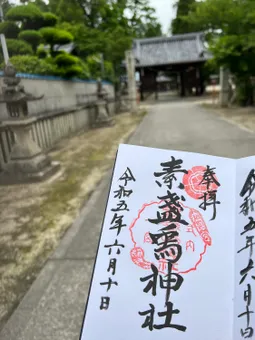 令和五年六月十日
奉拝
素盞嗚神社
令和五年六月十日